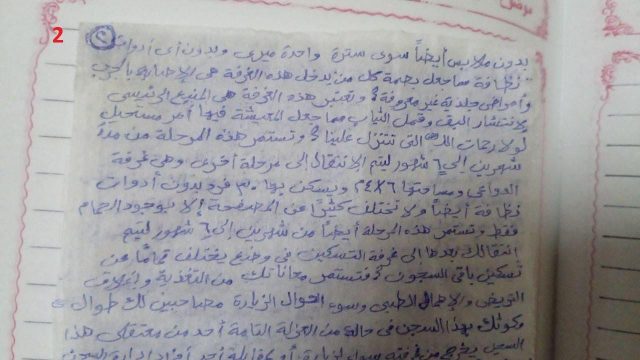 2
(٢)
بدون ملابس أيضاً سوى سترة واحدة ميرى وبدون أى أدوات
نظافة مما جعل بصمة كل من يدخل هذه الغرفة هى الإصابة بالجرب
وأمراض جلدية غير معروفة، وتعتبر هذه الغرفة هى المنبع الرئيسى
لانتشار البق وقمل الثياب مما جعل المعيشة فيها أمر مستحيل
لولا رحمات الله التى تتنزل علينا، وتستمر هذه المرحلة من مدة
شهرين إلى ٦ شهور ليتم الإنتقال إلى مرحلة أخرى وهى غرفة
الدواعى ومساحتها ٦×٢٤ ويسكن بها فرد بدون أدوات
نظافة أيضاً ولا تختلف كثيراً عن المصفحة إلا بوجود الحمام
فقط، وتستمر هذه المرحلة أيضاً من شهرين إلى ٦ شهور ليتم
انتقالك بعدها إلى غرفة التسكين فى وضع يختلف تماماً عن
تسكين باقى السجون، فتستمر معاناتك من التغذية وإغلاق
التريض والإهمال الطبى وسوء احوال الزيارة مصاحبين لك طوال
مكوثك بهذا السجن فى حالة من العزلة التامة أحد من معتقلى هذا
السجن يخرج من غرفته سواء لزيارة أو أحد أفراد إدارة السجن